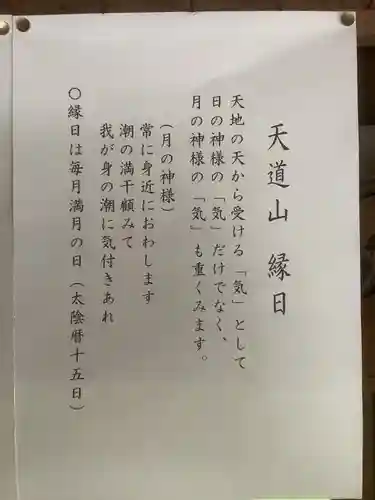 天道山 縁日
天地の天から受ける「気」として
日の神様の「気」だけでなく、
月の神様の「気」も重くみます。
(月の神様)
常に身近におわします
潮の満干顧みて
我が身の潮に気付きあれ
〇縁日は毎月満月の日(太陰暦十五日)